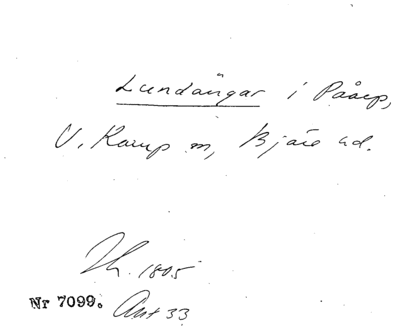 Lundängar i Påarp,
V. Karup sn, Bjäre hd.
Th. 1805
Nr 7099. Avt 33